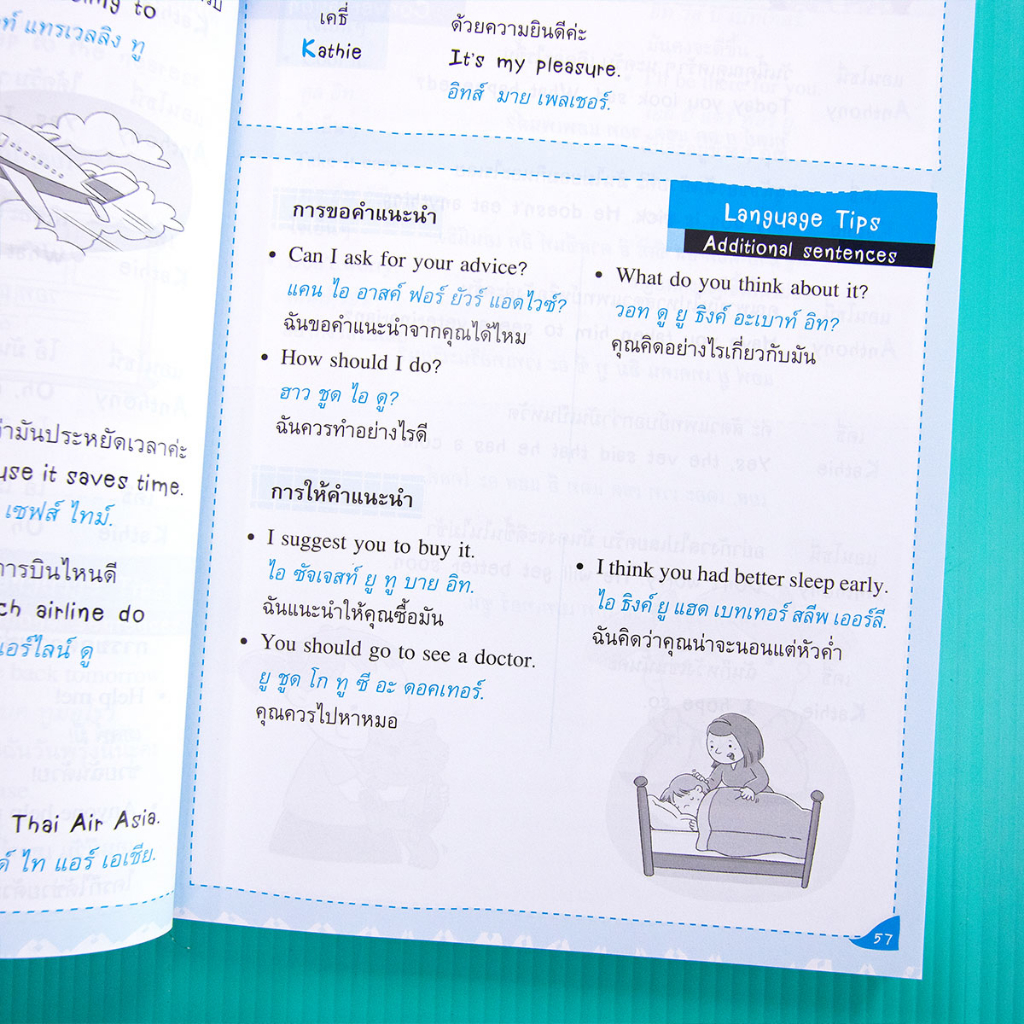 ing to
ท์ แทรเวลลิง ทู
ว่ามันประหยัดเวลาค่ะ
use it saves time.
เซฟส์ ไทม์.
การบินไหนดี
ch airline do
แอร์ไลน์ ดู
Thai Air Asia.
ด์ ไท แอร์ เอเชีย.
เคธี่
ด้วยความยินดีค่ะ
Kathie
It's my pleasure.
อิทส์ มาย เพลเชอร์.
Language Tips
Additional sentences
การขอคำแนะนำ
• Can I ask for your advice?
แคน ไอ อาสค์ ฟอร์ ยัวร์ แอดไวซ์?
ฉันขอคำแนะนำจากคุณได้ไหม
• How should I do?
ฮาว ชูด ไอ ดู?
ฉันควรทำอย่างไรดี
• What do you think about it?
วอท ดู ยู ธิงค์ อะเบาท์ อิท?
คุณคิดอย่างไรเกี่ยวกับมัน
การให้คำแนะนำ
• I suggest you to buy it.
ไอ ซัจเจสท์ ยู ทู บาย อิท.
ฉันแนะนำให้คุณซื้อมัน
• You should go to see a doctor.
ยู ชูด โก ทู ซี อะ ดอคเทอร์.
คุณควรไปหาหมอ
• I think you had better sleep early.
ไอ ธิงค์ ยู แฮด เบทเทอร์ สลีพ เออร์ลี.
ฉันคิดว่าคุณน่าจะนอนแต่หัวค่ำ
57